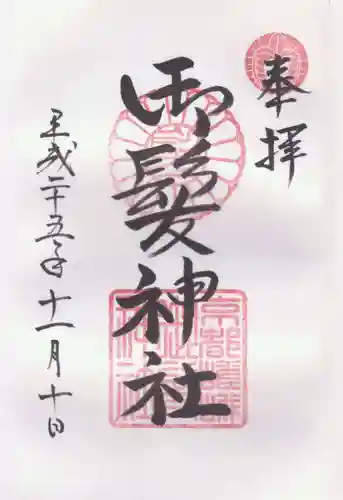 奉拝
御髪神社
平成二十五年十一月十日